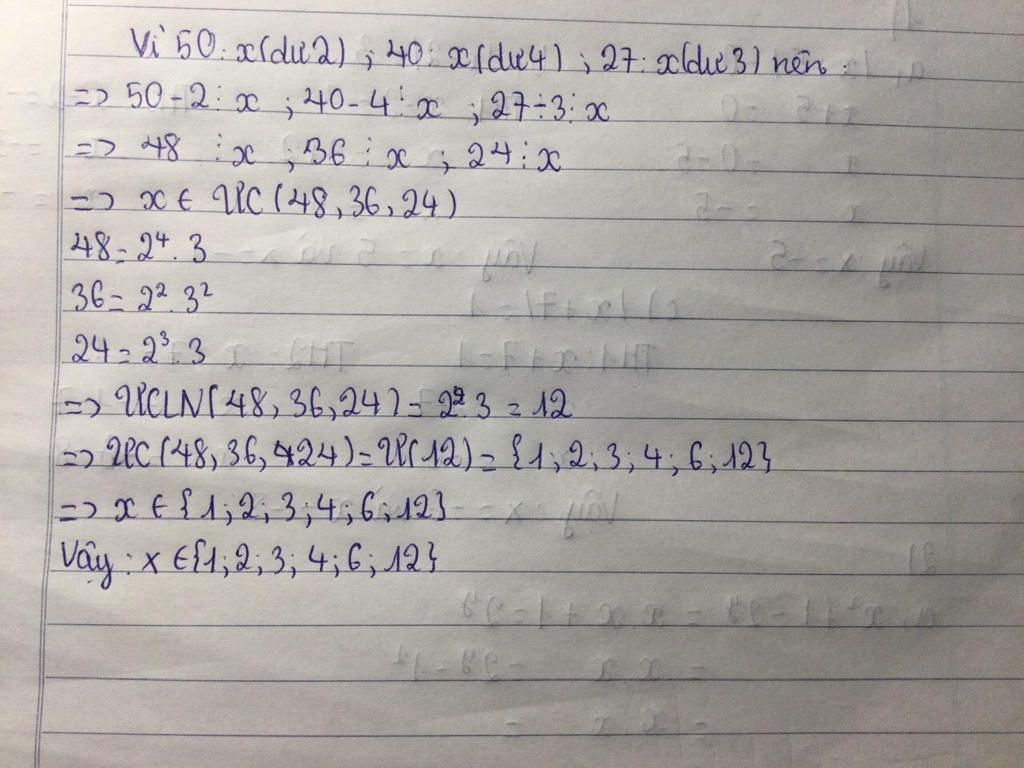 Vì 50 : x(dư 2) ; 40 : x(dư 4) ; 27 : x(dư 3) nên :
=> 50 - 2 ⋮ x ; 40 - 4 ⋮ x ; 27 - 3 ⋮ x
=> 48 ⋮ x ; 36 ⋮ x ; 24 ⋮ x
=> x ∈ ƯC (48, 36, 24)
48 = 2⁴ . 3
36 = 2² . 3²
24 = 2³ . 3
=> ƯCLN(48, 36, 24) = 2² . 3 = 12
=> ƯC (48, 36, 24) = Ư(12) = {1; 2; 3; 4; 6; 12}
=> x ∈ {1; 2; 3; 4; 6; 12}
Vậy : x ∈ {1; 2; 3; 4; 6; 12}